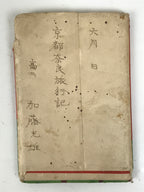 六月 日
京都奈良旅行記
加藤